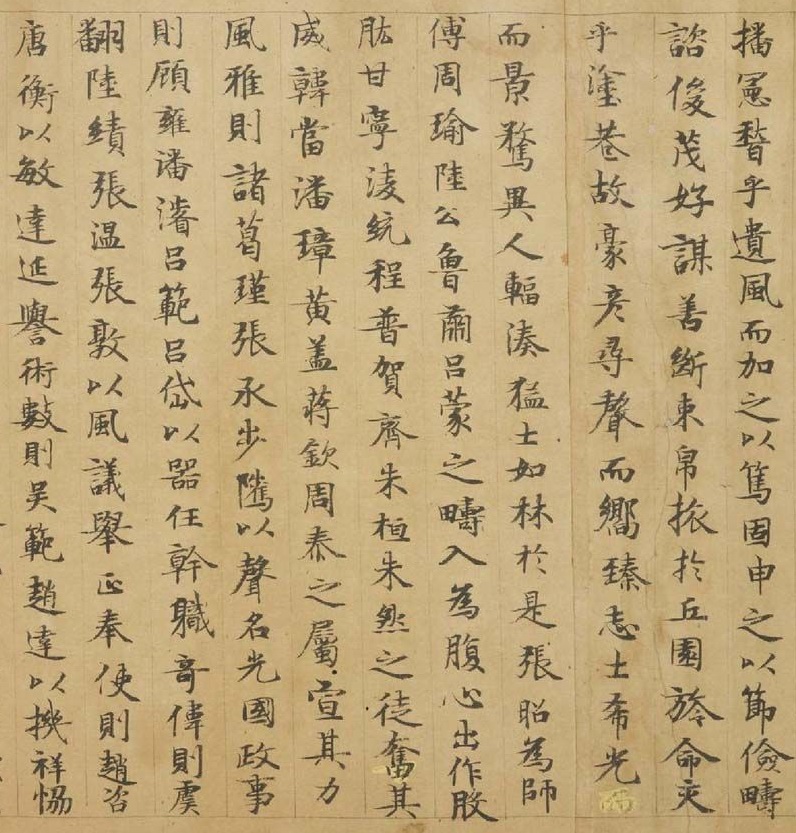 播憲稽乎遺風而加之以篤固申之以節儉疇
諮俊茂好謀善斷束帛旅於丘園旍命交
乎塗巷故豪彥尋聲而嚮臻志士希光
而景騖異人輻湊猛士如林於是張昭為師
傅周瑜陸公魯肅呂蒙之疇入為腹心出作股
肱甘寧淩統程普賀齊朱桓朱然之徒奮其
威韓當潘璋黃蓋蔣欽周泰之屬宣其力
風雅則諸葛瑾張承步隲以聲名光國政事
則顧雍潘濬呂範呂岱以器任幹職奇偉則虞
翻陸績張溫張敦以風議舉正奉使則趙咨
唐衡以敏達延譽術數則吳範趙達以機祥協